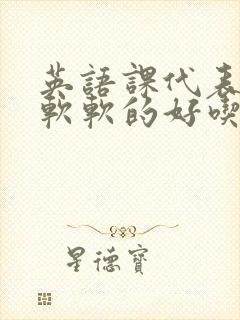 英語課代表
軟軟的好喫
星德寶